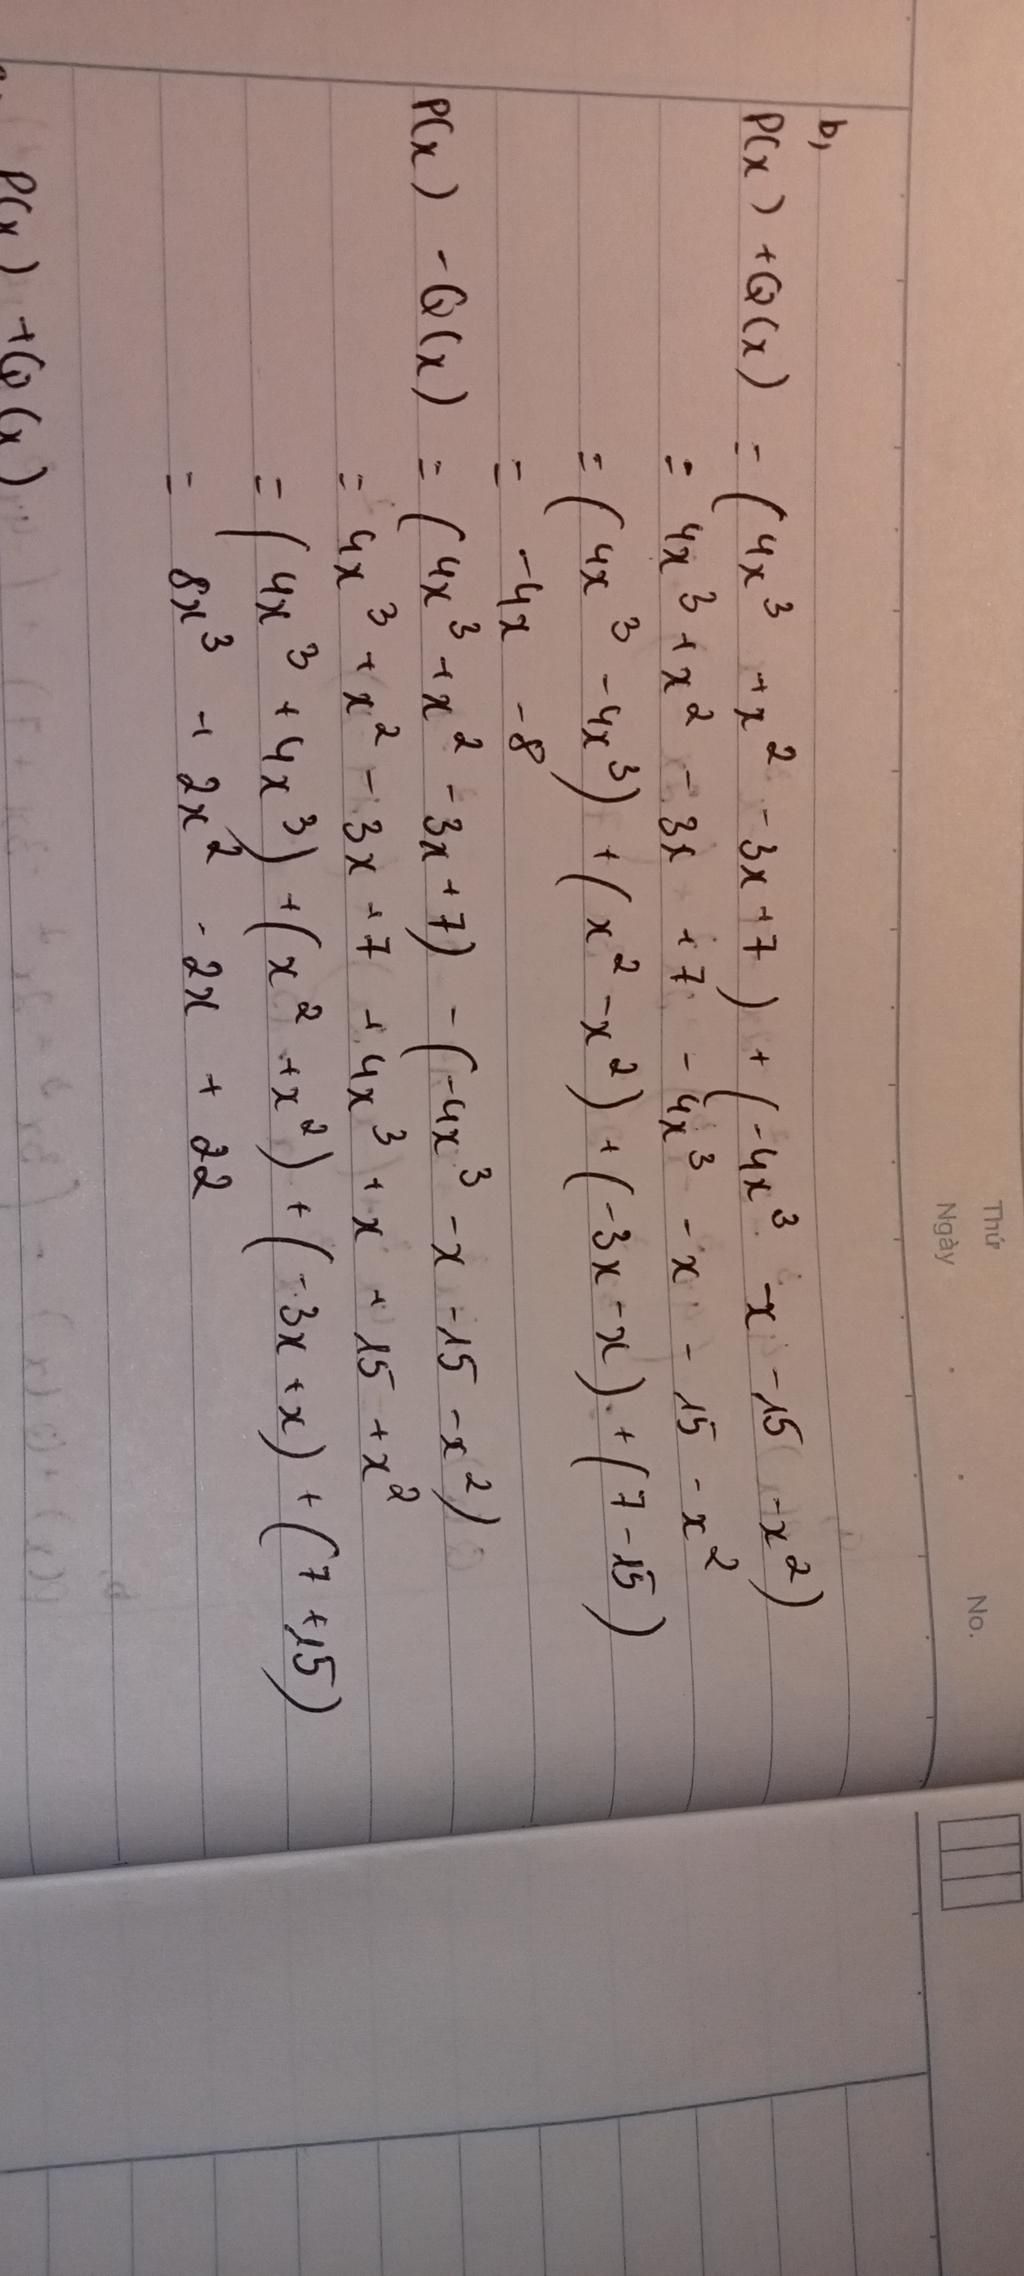 Thứ
Ngày
No.
b,
P(x) + Q(x) = (4x³ + x² - 3x + 7) + (-4x³ - x - 15 - x²)
= 4x³ + x² - 3x + 7 - 4x³ - x - 15 - x²
= (4x³ - 4x³) + (x² - x²) + (-3x - x) + (7 - 15)
= -4x - 8
P(x) - Q(x) = (4x³ + x² - 3x + 7) - (-4x³ - x - 15 - x²)
= 4x³ + x² - 3x + 7 + 4x³ + x + 15 + x²
= (4x³ + 4x³) + (x² + x²) + (-3x + x) + (7 + 15)
= 8x³ + 2x² - 2x + 22
P(x) + Q(x)